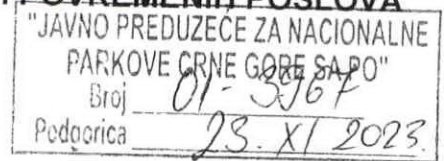 POSLOVA
"JAVNO PREDUZEĆE ZA NACIONALNE
PARKOVE CRNE GORE SA PO"
Broj 01-3967
Podgorica 23. XI 2023.